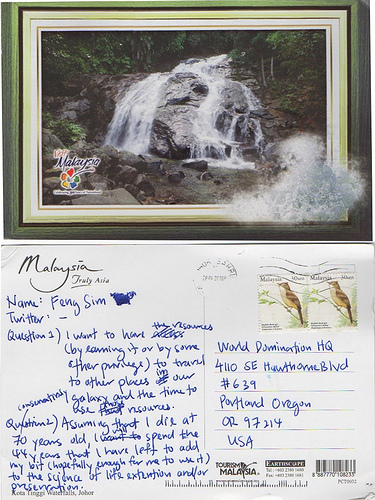 Visit
Malaysia
Malaysia
Truly Asia
Name: Feng Sim
Twitter: –
Question 1) I want to have the resources
(by earning it or by some
other privilege) to travel
to other places in our
galaxy and the time to
use resources.
(conservatively)
Question 2) Assuming that I die at
70 years old, I want to spend the
44 years that I have left to add
my bit (hopefully enough for me to use it)
to the science of life extention and/or
preservation.
Kota Tinggi Waterfalls, Johor
Malaysia 30sen
Malaysia 30sen
World Domination HQ
4110 SE Hawthorne Blvd
#639
Portland Oregon
OR 97214
USA
TOURISM
MALAYSIA
EARTHSCAPE
PCT0602